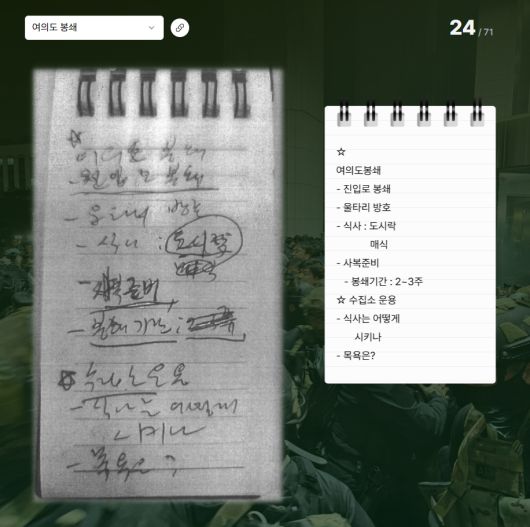 여의도 봉쇄
24 / 71
☆
여의도 봉쇄
- 진입로 봉쇄
- 울타리 방호
- 식사 : 도시락
- 사복준비
- 봉쇄기간 : 2~3주
☆ 수집소 운용
- 식사는 어떻게
시키나
- 목욕은?
☆
여의도봉쇄
- 진입로 봉쇄
- 울타리 방호
- 식사 : 도시락
매식
- 사복준비
- 봉쇄기간 : 2~3주
☆ 수집소 운용
- 식사는 어떻게
시키나
- 목욕은?